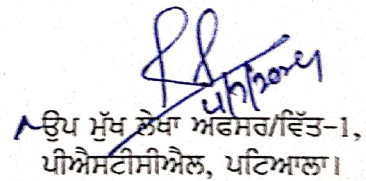 4/7/2024
ਉਪ ਮੁੱਖ ਲੇਖਾ ਅਫਸਰ/ਵਿੱਤ-1,
ਪੀਐਸਟੀਸੀਐਲ, ਪਟਿਆਲਾ।